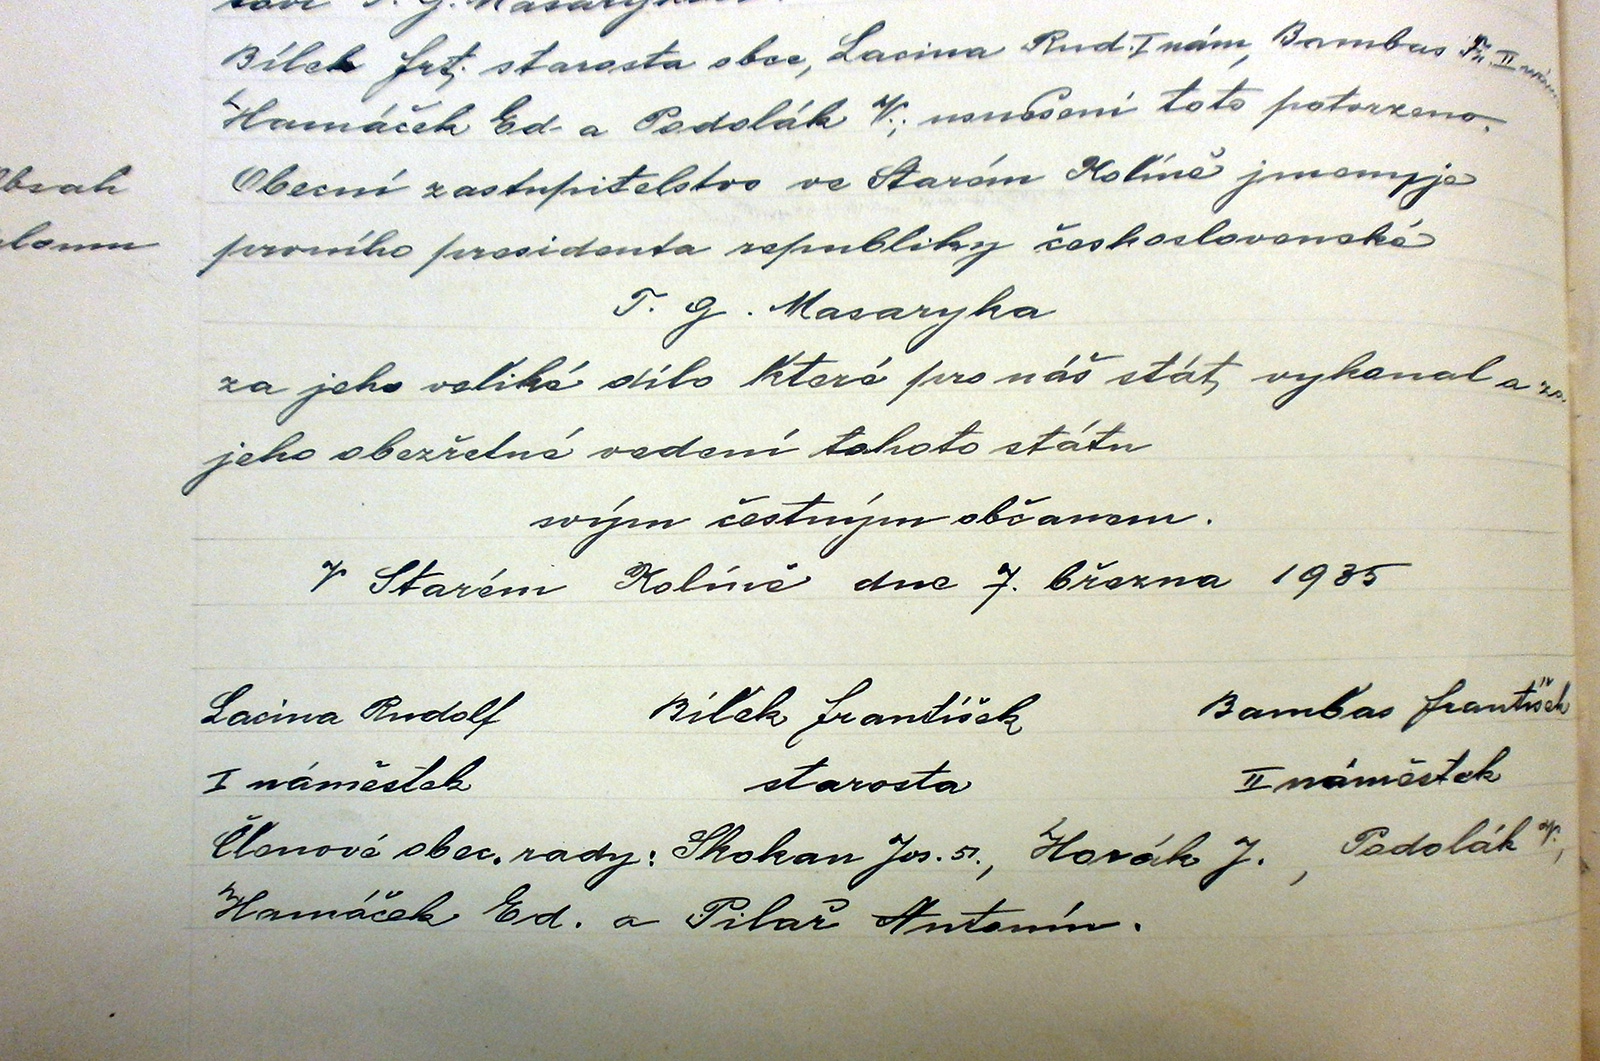 T. G. Masarykovi.
Bílek frt. starosta obce, Lacina Rud. I nám, Bambas Fr. II
Hamáček Ed. a Podolák V.; usnesení toto potvrzeno.
Obsah
Obecní zastupitelstvo ve Starém Kolíně jmenuje
prvního presidenta republiky československé
T. G. Masaryka
za jeho veliké dílo které pro náš stát, vykonal a za
jeho obezřetné vedení tohoto státu
svým čestným občanem.
V Starém Kolíně dne 7. března 1935
Lacina Rudolf Bílek František Bambas František
I náměstek starosta II náměstek
Členové obec. rady: Skokan Jos. st., Horák J., Podolák V.,
Hamáček Ed. a Pilař Antonín.